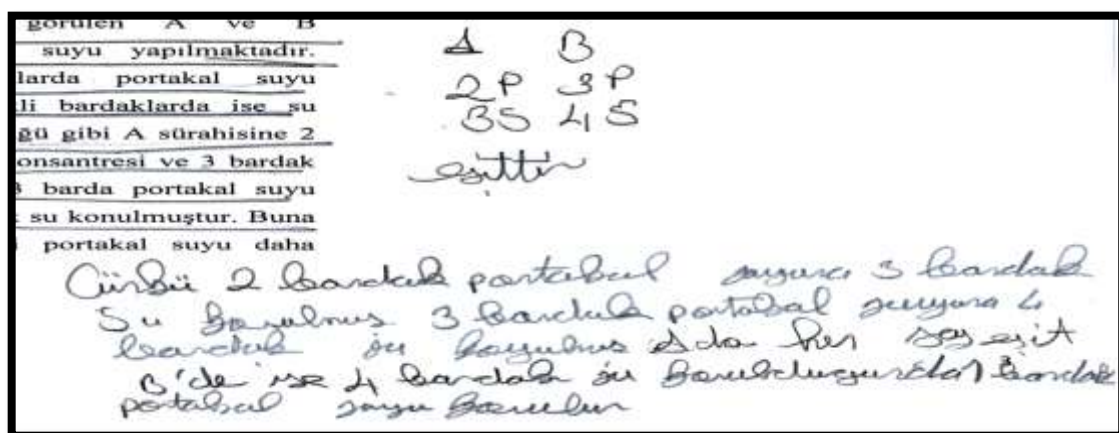 görülen A ve B
suyu yapılmaktadır.
larda portakal suyu
li bardaklarda ise su
ğü gibi A sürahisine 2
onsantresi ve 3 bardak
barda portakal suyu
su konulmuştur. Buna
portakal suyu daha
A B
2P 3P
3S 4S
eşittir
Çünkü 2 bardak portakal suyuna 3 bardak
su koyulmuş 3 bardak portakal suyuna 4
bardak su koyulmuş A da her şey eşit
B'de ise 4 bardak su koyulduğunda 3 bardak
portakal suyu koyulur